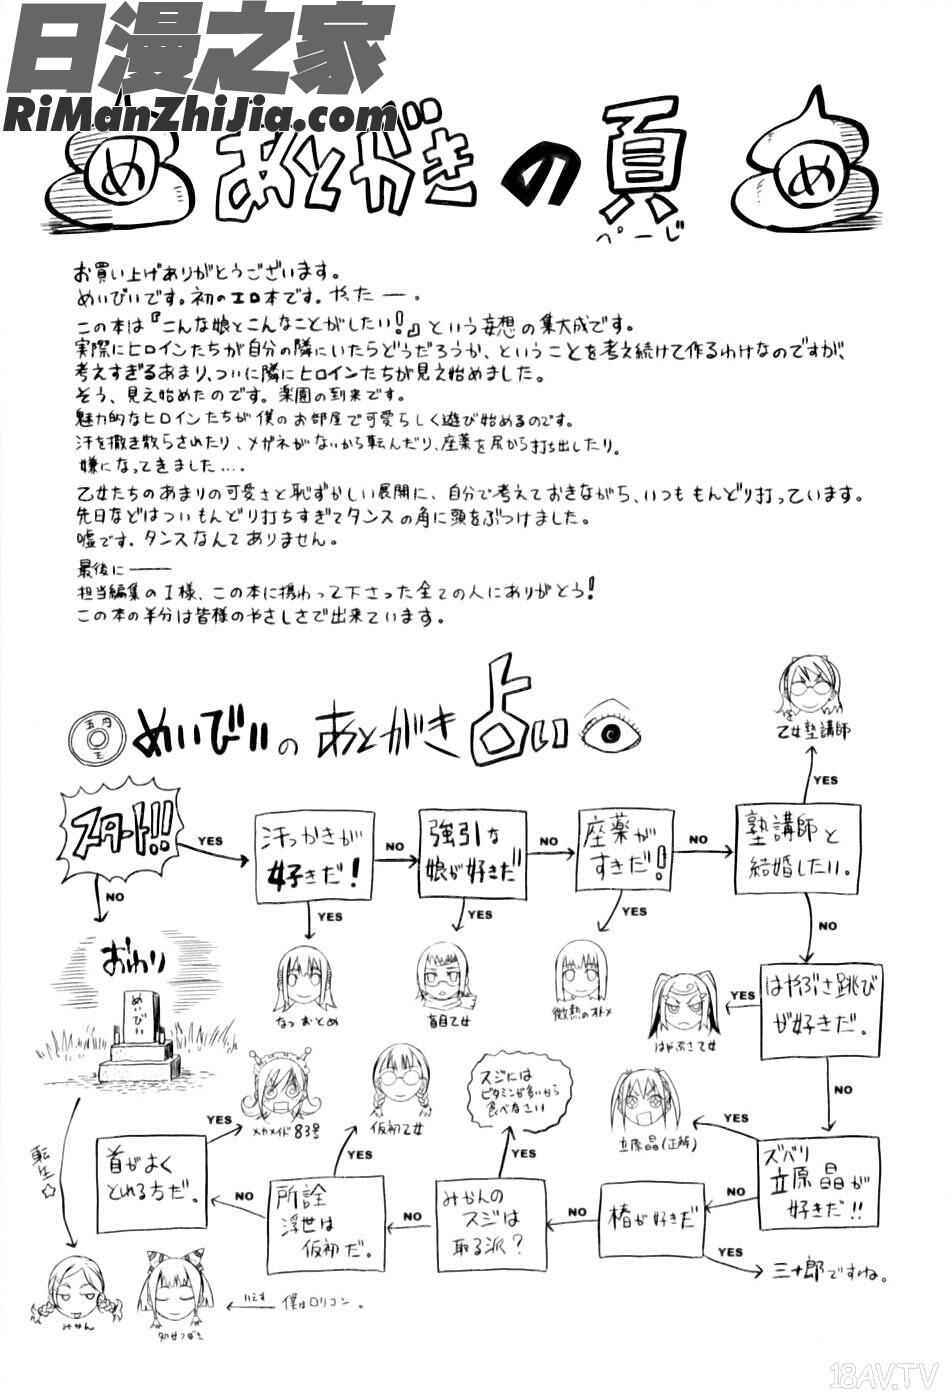 日漫之家
RiManZhiJia.com
め
あとがきの頁
ぺーじ
め
お買い上げありがとうございます。
めいびいです。初のエロ本です。やったー。
この本は『こんな娘とこんなことがしたい!』という妄想の集大成です。
実際にヒロインたちが自分の隣にいたらどうだろうか、ということを考え続けて作るわけなのですが、
考えすぎるあまり、ついに隣にヒロインたちが見え始めました。
そう、見え始めたのです。楽園の到来です。
魅力的なヒロインたちが僕のお部屋で可愛らしく遊び始めるのです。
汗を撒き散らされたり、メガネがないから転んだり、座薬を尻から打ち出したり。
嫌になってきました….
乙女たちのあまりの可愛さと恥ずかしい展開に、自分で考えておきながら、いつももんどり打っています。
先日などはついもんどり打ちすぎてタンスの角に頭をぶつけました。
嘘です。タンスなんてありません。
最後に――
担当編集のI様、この本に携わって下さった全ての人にありがとう!
この本の半分は皆様のやさしさで出来ています。
五円
玉
めいびいのあとがき占い
乙女塾講師
YES
スタート!!
YES
汗っかきが
好きだ!
NO
強引な
娘が好きだ
NO
座薬が
すきだ!
NO
塾講師と
結婚したい。
NO
YES
YES
YES
NO
おわり
めいびい
なつおとめ
盲目乙女
微熱のオトメ
はやぶさ乙女
YES
はやぶさ跳び
が好きだ。
NO
転生☆
首がよく
とれる方だ。
YES
メカメイド83号
NO
所詮
浮世は
仮初だ。
YES
仮初乙女
NO
みかんの
スジは
取る派?
YES
スジには
ビタミンが多いから
食べなさい
NO
椿が好きだ
YES
三十郎ですね。
NO
ズバリ
立原晶が
好きだ!!
YES
立原晶(正解)
みかん
幼女つばき
いえす
僕はロリコン。
18AV.TV